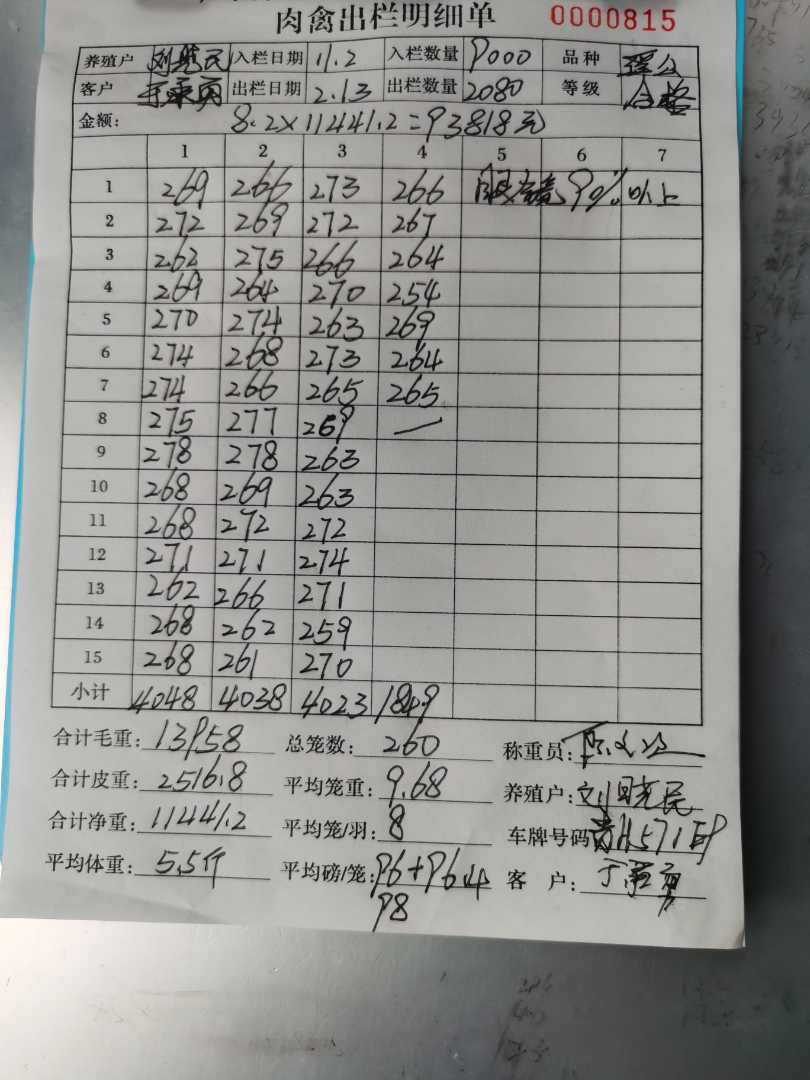 肉禽出栏明细单 0000815
养殖户 刘晓民 入栏日期 11.2 入栏数量 9000 品种
客户 出栏日期 2.13 出栏数量 2080 等级 合格
金额: 8.2×11441.2=93818元
1 2 3 4 5 6 7
1 269 266 273 266 眼 90%以上
2 272 269 272 267
3 262 275 266 264
4 269 264 270 254
5 270 274 263 269
6 274 268 273 264
7 274 266 265 265
8 275 277 269 —
9 278 278 263
10 268 269 263
11 268 272 272
12 271 271 274
13 262 266 271
14 268 262 259
15 268 261 270
小计 4048 4038 4023 1849
合计毛重: 13958 总笼数: 260 称重员:
合计皮重: 2516.8 平均笼重: 9.68 养殖户: 刘晓民
合计净重: 11441.2 平均笼/羽: 8 车牌号码
平均体重: 5.5斤 平均磅/笼: 96+96.4 客 户:
98